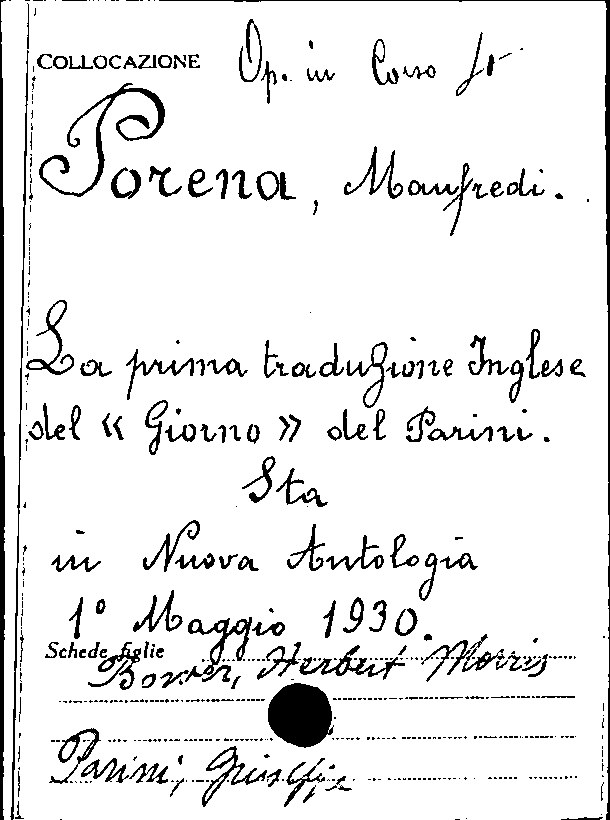 COLLOCAZIONE Op. in Corso
Porena, Manfredi.
La prima traduzione Inglese
del « Giorno » del Parini.
Sta
in Nuova Antologia
1º Maggio 1930.
Schede figlie
Herbert Morris
Parini, Giuseppe